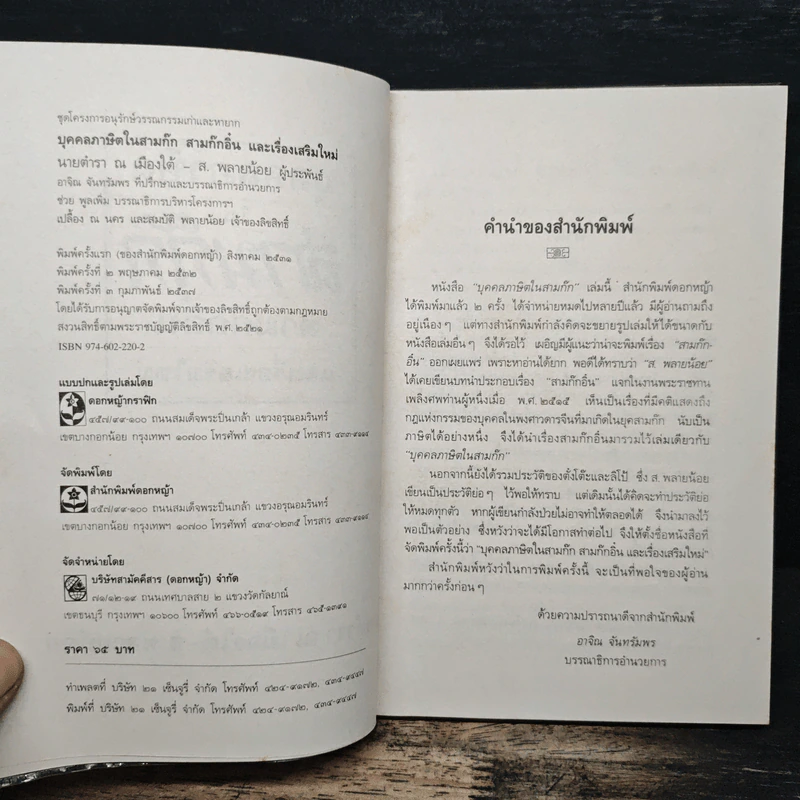 ชุดโครงการอนุรักษ์วรรณกรรมเก่าและหายาก
บุคคลภาษิตในสามก๊ก สามก๊กอิ๋น และเรื่องเสริมใหม่
นายตำรา ณ เมืองใต้ – ส. พลายน้อย ผู้ประพันธ์
อาจิณ จันทรัมพร ที่ปรึกษาและบรรณาธิการอำนวยการ
ช่วย พูลเพิ่ม บรรณาธิการบริหารโครงการฯ
เปลื้อง ณ นคร และสมบัติ พลายน้อย เจ้าของลิขสิทธิ์
พิมพ์ครั้งแรก (ของสำนักพิมพ์ดอกหญ้า) สิงหาคม ๒๕๓๑
พิมพ์ครั้งที่ ๒ พฤษภาคม ๒๕๓๒
พิมพ์ครั้งที่ ๓ กุมภาพันธ์ ๒๕๓๗
โดยได้รับการอนุญาตจัดพิมพ์จากเจ้าของลิขสิทธิ์ถูกต้องตามกฎหมาย
สงวนสิทธิ์ตามพระราชบัญญัติลิขสิทธิ์ พ.ศ. ๒๕๒๑
ISBN 974-602-220-2
แบบปกและรูปเล่มโดย
ดอกหญ้ากราฟิก
๔๕๗/๙๙-๑๐๐ ถนนสมเด็จพระปิ่นเกล้า แขวงอรุณอมรินทร์
เขตบางกอกน้อย กรุงเทพฯ ๑๐๗๐๐ โทรศัพท์ ๔๓๔-๐๒๓๕ โทรสาร ๔๓๔-๙๑๑๔
จัดพิมพ์โดย
สำนักพิมพ์ดอกหญ้า
๔๕๗/๙๙-๑๐๐ ถนนสมเด็จพระปิ่นเกล้า แขวงอรุณอมรินทร์
เขตบางกอกน้อย กรุงเทพฯ ๑๐๗๐๐ โทรศัพท์ ๔๓๔-๐๒๓๕ โทรสาร ๔๓๔-๙๑๑๔
จัดจำหน่ายโดย
บริษัทสามัคคีสาร (ดอกหญ้า) จำกัด
๗๑/๑๒-๑๙ ถนนเทศบาลสาย ๒ แขวงวัดกัลยาณ์
เขตธนบุรี กรุงเทพฯ ๑๐๖๐๐ โทรศัพท์ ๔๖๖-๐๕๑๙ โทรสาร ๔๖๕-๑๓๙๑
ราคา ๖๕ บาท
ทำเพลตที่ บริษัท ๒๑ เซ็นจูรี่ จำกัด โทรศัพท์ ๔๒๔-๙๑๗๒, ๔๓๔-๑๔๔๗
พิมพ์ที่ บริษัท ๒๑ เซ็นจูรี่ จำกัด โทรศัพท์ ๔๒๔-๙๑๗๒, ๔๓๔-๑๔๔๗
คำนำของสำนักพิมพ์
หนังสือ "บุคคลภาษิตในสามก๊ก" เล่มนี้ สำนักพิมพ์ดอกหญ้า
ได้พิมพ์มาแล้ว ๒ ครั้ง ได้จำหน่ายหมดไปหลายปีแล้ว มีผู้อ่านถามถึง
อยู่เนืองๆ แต่ทางสำนักพิมพ์กำลังคิดจะขยายรูปเล่มให้ได้ขนาดกับ
หนังสือเล่มอื่นๆ จึงได้รอไว้ เผอิญมีผู้แนะว่าน่าจะพิมพ์เรื่อง "สามก๊ก-
อิ๋น" ออกเผยแพร่ เพราะหาอ่านได้ยาก พอดีได้ทราบว่า "ส. พลายน้อย"
ได้เคยเขียนบทนำประกอบเรื่อง "สามก๊กอิ๋น" แจกในงานพระราชทาน
เพลิงศพท่านผู้หนึ่งเมื่อ พ.ศ. ๒๕๑๕ เห็นเป็นเรื่องที่มีคติแสดงถึง
กฎแห่งกรรมของบุคคลในพงศาวดารจีนที่มาเกิดในยุคสามก๊ก นับเป็น
ภาษิตได้อย่างหนึ่ง จึงได้นำเรื่องสามก๊กอิ๋นมารวมไว้เล่มเดียวกับ
"บุคคลภาษิตในสามก๊ก"
นอกจากนี้ยังได้รวมประวัติของตั๋งโต๊ะและลิโป้ ซึ่ง ส. พลายน้อย
เขียนเป็นประวัติย่อๆ ไว้พอให้ทราบ แต่เดิมนั้นได้คิดจะทำประวัติย่อ
ให้หมดทุกตัว หากผู้เขียนกำลังป่วยไม่อาจทำให้ตลอดได้ จึงนำมาลงไว้
พอเป็นตัวอย่าง ซึ่งหวังว่าจะได้มีโอกาสทำต่อไป จึงให้ตั้งชื่อหนังสือที่
จัดพิมพ์ครั้งนี้ว่า "บุคคลภาษิตในสามก๊ก สามก๊กอิ๋น และเรื่องเสริมใหม่"
สำนักพิมพ์หวังว่าในการพิมพ์ครั้งนี้ จะเป็นที่พอใจของผู้อ่าน
มากกว่าครั้งก่อนๆ
ด้วยความปรารถนาดีจากสำนักพิมพ์
อาจิณ จันทรัมพร
บรรณาธิการอำนวยการ